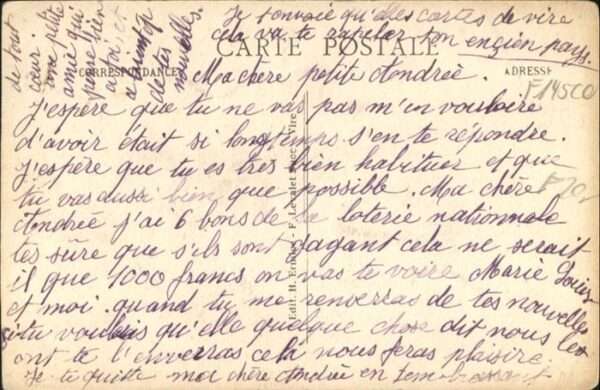 Je t'envoie qu'elles cartes de vire
cela va te rapeler ton ençien pays.
CARTE POSTALE
CORRESPONDANCE
ADRESSE
F 14500
Ma chère petite Andrée.
J'espère que tu ne vas pas m'en vouloire
d'avoir était si longtemps s'en te répondre.
J'espère que tu es tres bien habituer et que
tu vas aussi bien que possible. Ma chère
Andrée j'ai 6 bons de la loterie nationnale
tes sûre que s'ils sont gagant cela ne serait
il que 1000 francs on vas te voire Marie Louise
et moi. quand tu me renverras de tes nouvelles
si tu voulais qu'elle quelque chose dit nous les
ont te l'enverras cela nous feras plaisire.
Je te quitte ma chère Andrée en t'embrassant
de tout
cœur.
une petite
amie qui
pense bien
a toi et
de tes
nouvelles.
Edit.
Vire